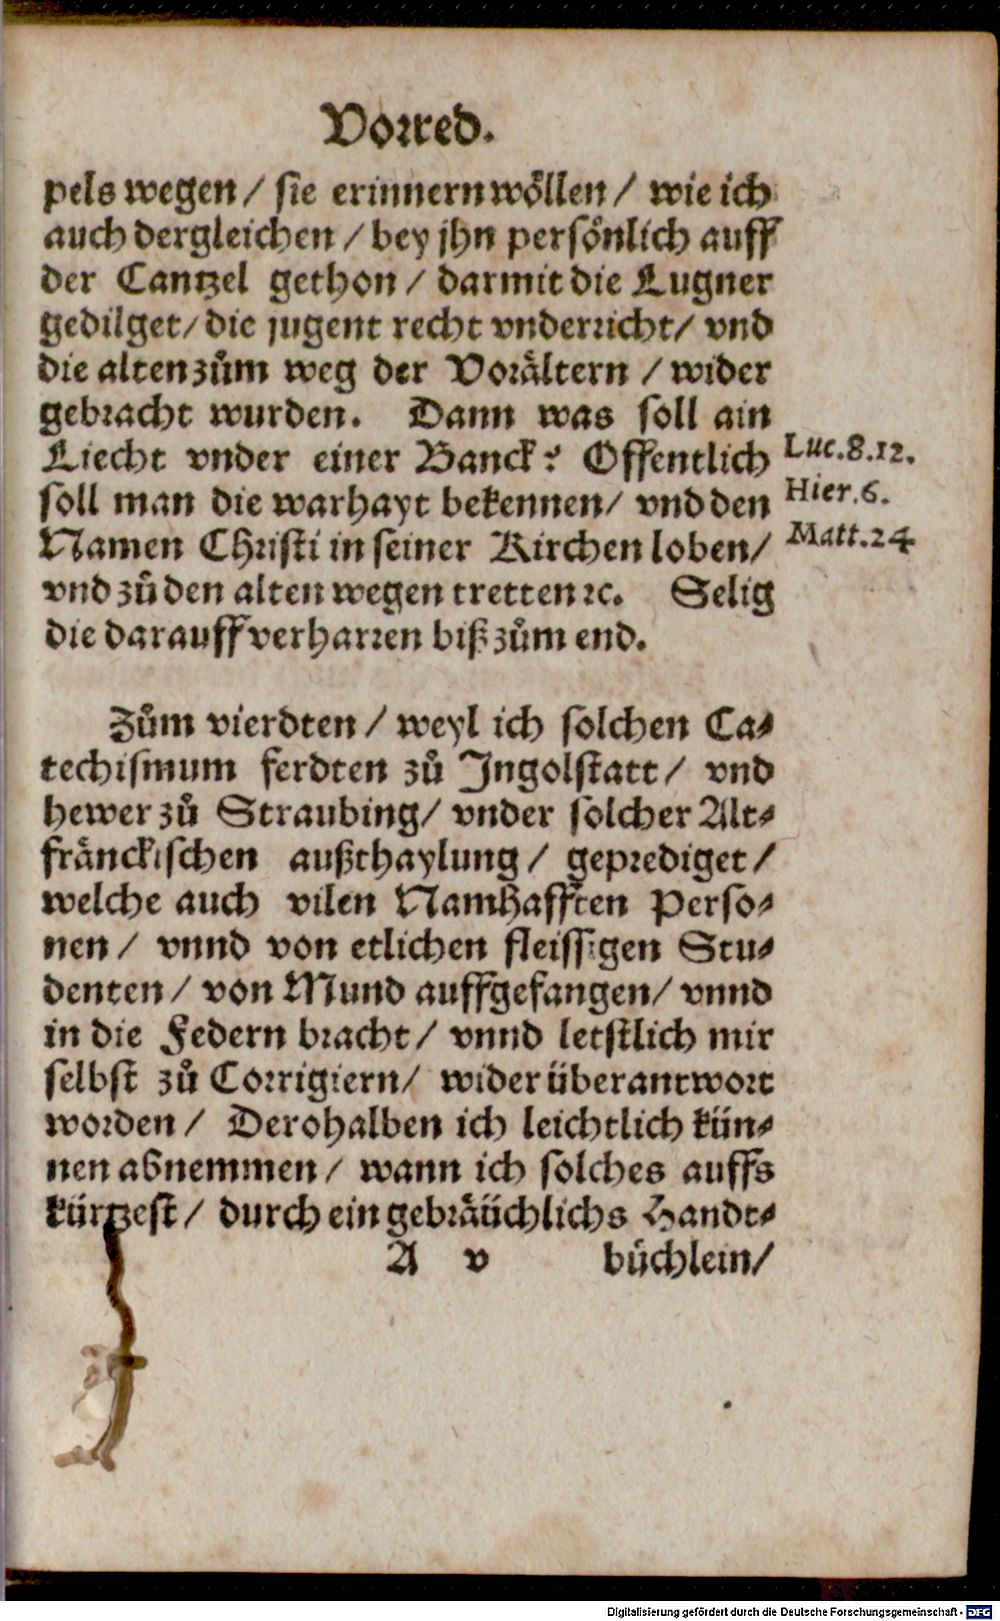 Vorred.
pels wegen / sie erinnern wöllen / wie ich
auch dergleichen / bey jhn persönlich auff
der Cantzel gethon / darmit die Lugner
gedilget / die jugent recht vnderricht / vnd
die alten zům weg der Vorältern / wider
gebracht wurden. Dann was soll ain
Liecht vnder einer Banck? Offentlich
soll man die warhayt bekennen / vnd den
Namen Christi in seiner Kirchen loben /
vnd zů den alten wegen tretten ꝛc. Selig
die darauff verharren biß zům end.
Luc.8.12.
Hier.6.
Matt.24
Zům vierdten / weyl ich solchen Ca⸗
techismum ferdten zů Ingolstatt / vnd
hewer zů Straubing / vnder solcher Alt⸗
fränckischen außthaylung / geprediget /
welche auch vilen Namhafften Perso⸗
nen / vnnd von etlichen fleissigen Stu⸗
denten / von Mund auffgefangen / vnnd
in die Federn bracht / vnnd letstlich mir
selbst zů Corrigiern / wider überantwort
worden / Derohalben ich leichtlich kün⸗
nen abnemmen / wann ich solches auffs
kürtzest / durch ein gebräüchlichs Handt⸗
A v büchlein /
Digitalisierung gefördert durch die Deutsche Forschungsgemeinschaft - DFG